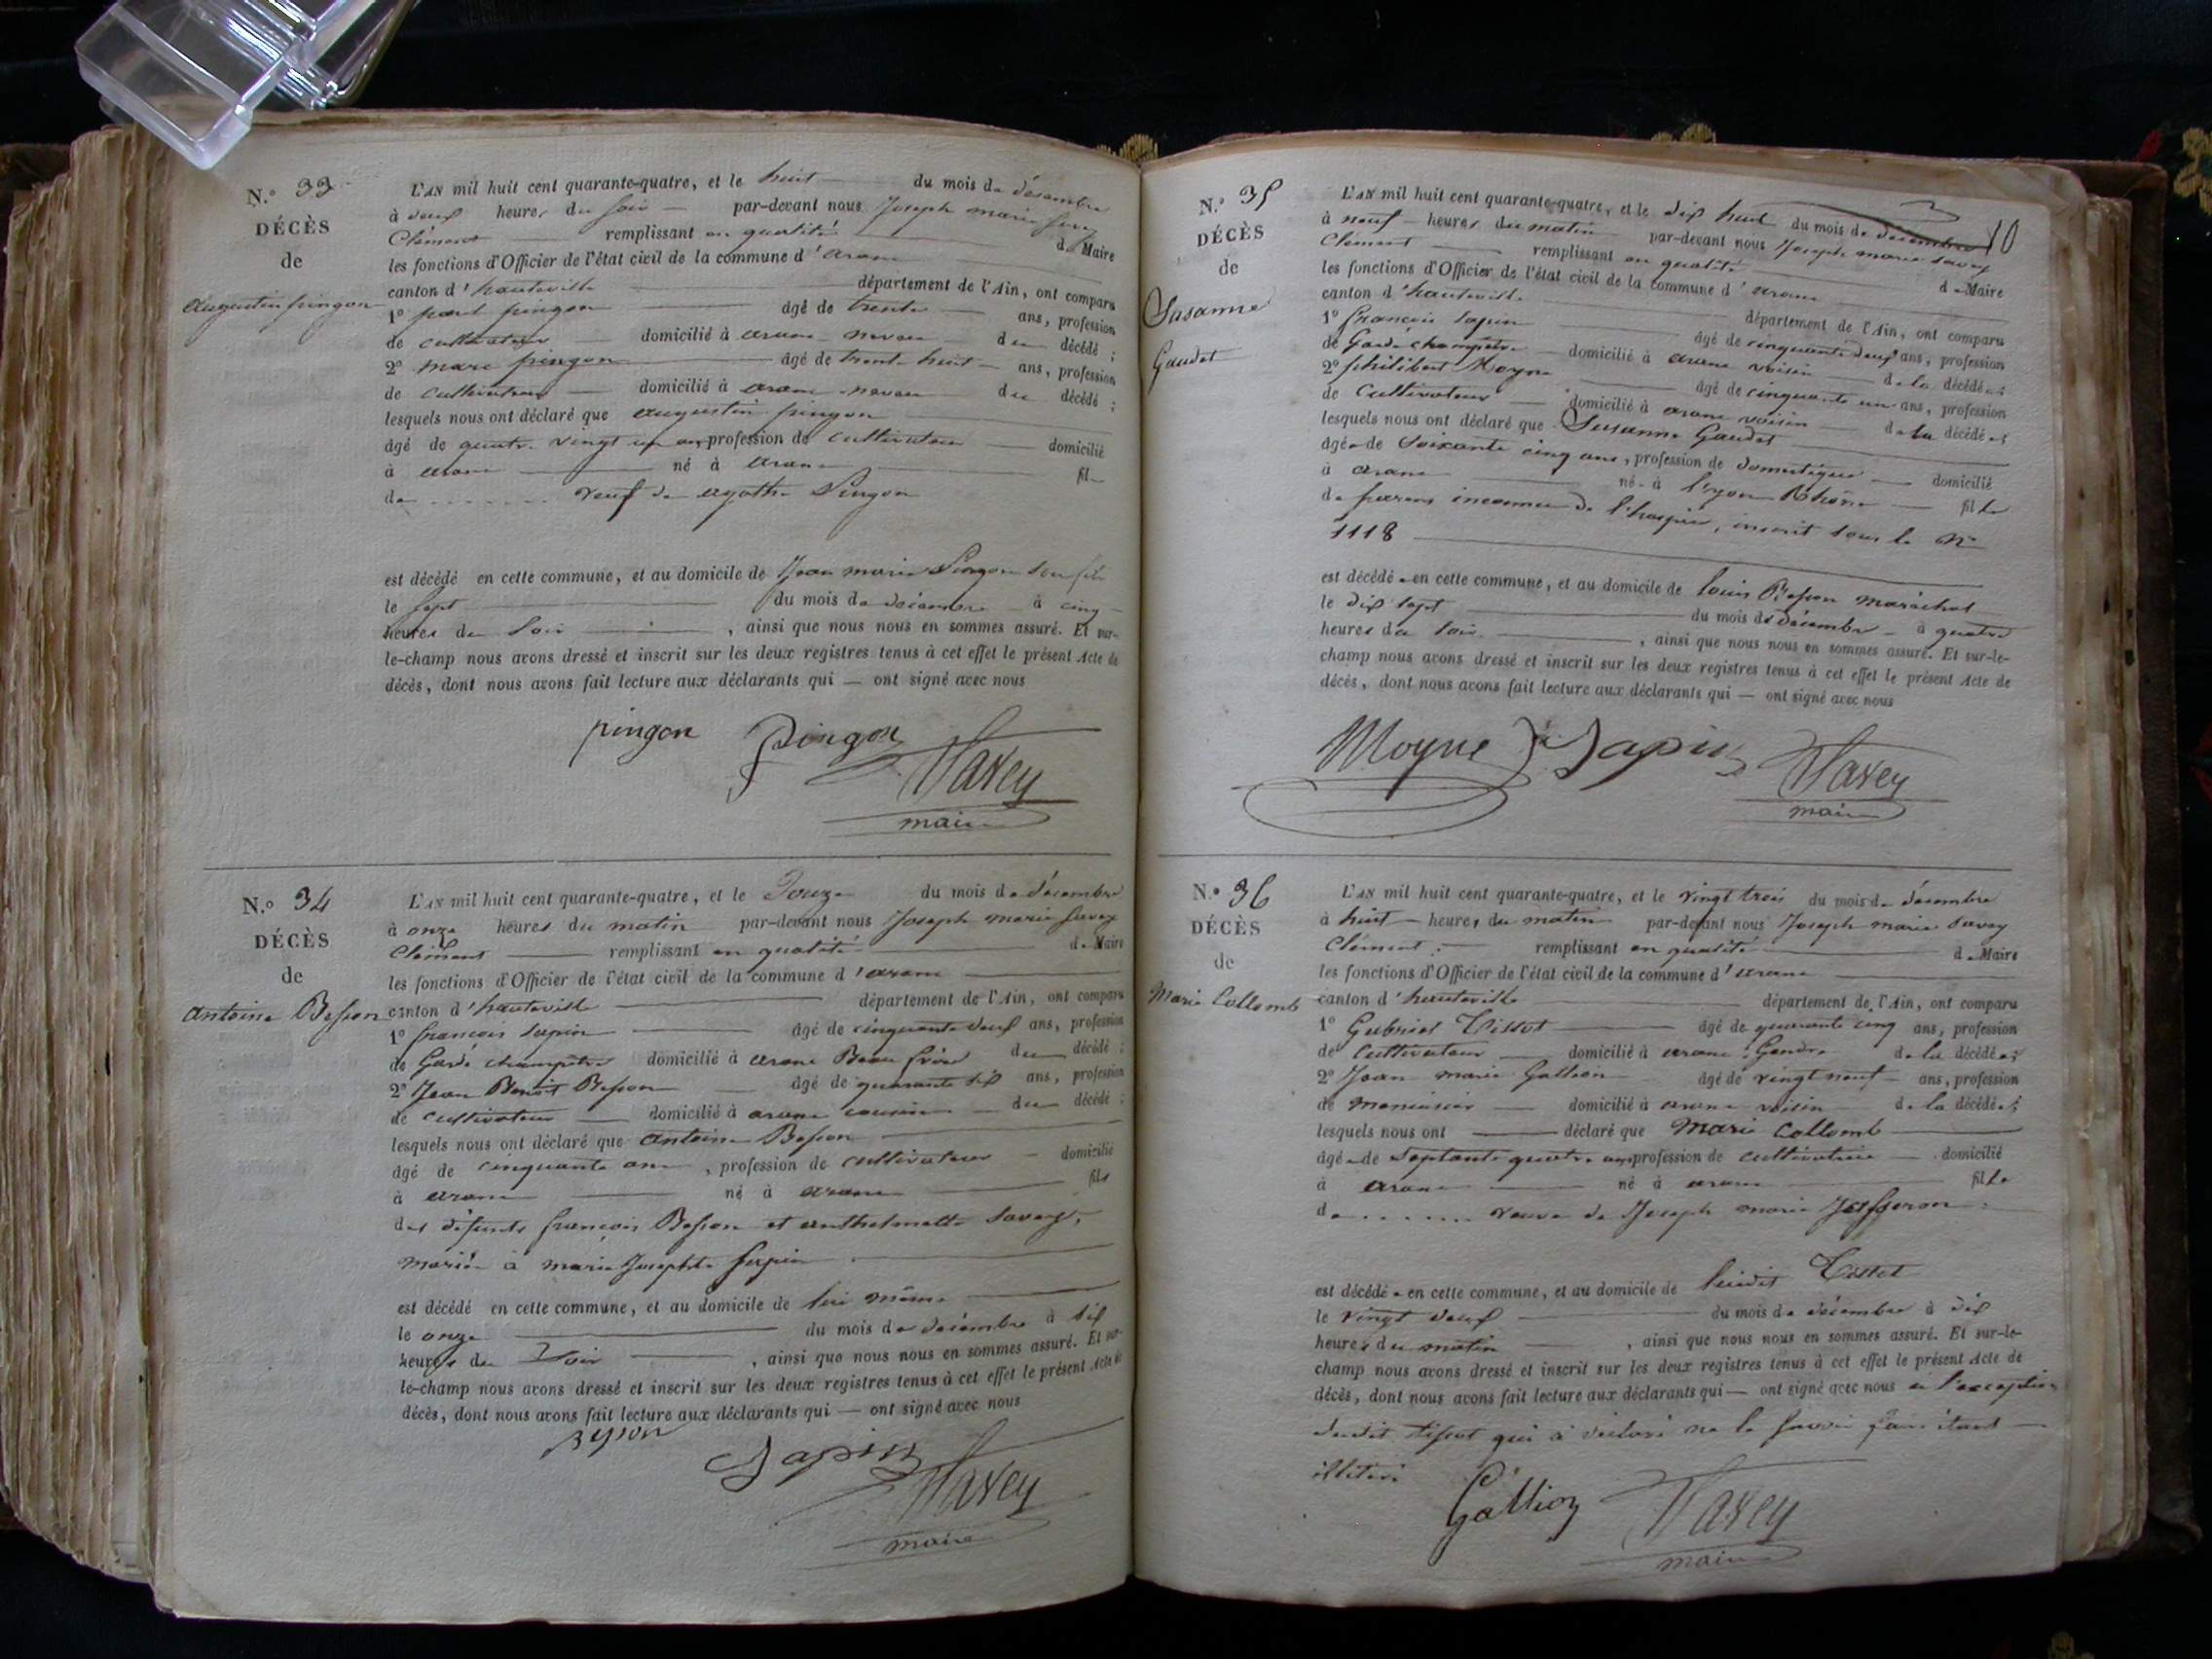 N.º 33
DÉCÈS
de
Augustin pingon
L'AN mil huit cent quarante-quatre, et le huit du mois de décembre
à deux heures du soir par-devant nous Joseph marie Savey
Clément remplissant en qualité de Maire
les fonctions d'Officier de l'état civil de la commune d'arane
canton d'hauteville département de l'Ain, ont comparu
1º paul pingon âgé de trente ans, profession
de cultivateur domicilié à arane neveu du décédé ;
2º marc pingon âgé de trent huit ans, profession
de cultivateur domicilié à arane neveu du décédé ;
lesquels nous ont déclaré que augustin pingon
âgé de quatre vingt un ans profession de cultivateur domicilié
à arane né à arane fil
de ........ veuf de agathe Pingon
est décédé en cette commune, et au domicile de Jean marie Pingon son fils
le sept du mois de décembre à cinq
heures du soir , ainsi que nous nous en sommes assuré. Et sur-
le-champ nous avons dressé et inscrit sur les deux registres tenus à cet effet le présent Acte de
décès, dont nous avons fait lecture aux déclarants qui — ont signé avec nous
pingon Pingon Savey
maire
N.º 34
DÉCÈS
de
antoine Besson
L'AN mil huit cent quarante-quatre, et le Douze du mois de décembre
à onze heures du matin par-devant nous Joseph marie Savey
Clément remplissant en qualité de Maire
les fonctions d'Officier de l'état civil de la commune d'arane
canton d'hauteville département de l'Ain, ont comparu
1º françois sapin âgé de cinquante deux ans, profession
de Garde champêtre domicilié à arane Beau frère du décédé ;
2º Jean Benoit Besson âgé de quarante six ans, profession
de cultivateur domicilié à arane cousin du décédé ;
lesquels nous ont déclaré que antoine Besson
âgé de cinquante ans , profession de cultivateur domicilié
à arane né à arane fils
des défunts françois Besson et anthelmette Savey,
marié à marie Josephte Sapin
est décédé en cette commune, et au domicile de lui même
le onze du mois de décembre à six
heures du soir , ainsi que nous nous en sommes assuré. Et sur-
le-champ nous avons dressé et inscrit sur les deux registres tenus à cet effet le présent Acte de
décès, dont nous avons fait lecture aux déclarants qui — ont signé avec nous
Sapin Savey
maire
10
N.º 35
DÉCÈS
de
Susanne
Gaudet
L'AN mil huit cent quarante-quatre, et le dix huit du mois de décembre
à neuf heures du matin par-devant nous Joseph marie Savey
Clément remplissant en qualité de Maire
les fonctions d'Officier de l'état civil de la commune d'arane
canton d'hauteville département de l'Ain, ont comparu
1º françois sapin âgé de cinquante deux ans, profession
de Garde champêtre domicilié à arane voisin de la décédée ;
2º philibert Moyne âgé de cinquante un ans, profession
de Cultivateur domicilié à arane voisin de la décédée ;
lesquels nous ont déclaré que Susanne Gaudet
âgée de Soixante cinq ans, profession de domestique domicilié
à arane né à l'yon Rhône fille
de parens inconnu de l'hospice, inscrit sous le Nº
1118
est décédée en cette commune, et au domicile de louis Besson maréchal
le dix sept du mois de décembre à quatre
heures du soir , ainsi que nous nous en sommes assuré. Et sur-le-
champ nous avons dressé et inscrit sur les deux registres tenus à cet effet le présent Acte de
décès, dont nous avons fait lecture aux déclarants qui — ont signé avec nous
Moyne Sapin Savey
maire
N.º 36
DÉCÈS
de
Marie Collomb
L'AN mil huit cent quarante-quatre, et le vingt trois du mois de décembre
à huit heures du matin par-devant nous Joseph marie Savey
Clément remplissant en qualité de Maire
les fonctions d'Officier de l'état civil de la commune d'arane
canton d'hauteville département de l'Ain, ont comparu
1º Gabriel Tissot âgé de quarante cinq ans, profession
de Cultivateur domicilié à arane Gendre de la décédée ;
2º Jean marie Gallion âgé de vingt neuf ans, profession
de menuisier domicilié à arane voisin de la décédée ;
lesquels nous ont déclaré que Marie Collomb
âgée de Septante quatre ans profession de cultivatrice domicilié
à arane né à arane fille
de ........ veuve de Joseph marie
est décédée en cette commune, et au domicile de ledit Tissot
le vingt deux du mois de décembre à dix
heures du matin , ainsi que nous nous en sommes assuré. Et sur-le-
champ nous avons dressé et inscrit sur les deux registres tenus à cet effet le présent Acte de
décès, dont nous avons fait lecture aux déclarants qui — ont signé avec nous à l'exception
dudit Tissot qui à déclaré ne le savoir étant
illitéré
Gallion Savey
maire